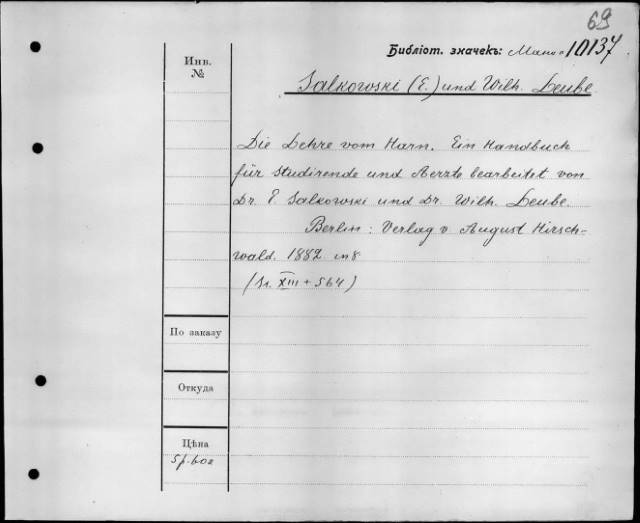 69
Библіот. значекъ: 10137
Инв.
№
Salkowski (E.) und Wilh. Leube
Die Lehre vom Harn. Ein Handbuch
für Studirende und Aerzte bearbeitet von
Dr. E. Salkowski und Dr. Wilh. Leube
Berlin: Verlag v. August Hirsch-
wald. 1882 in 8
(S. XIII + 564)
По заказу
Откуда
Цѣна